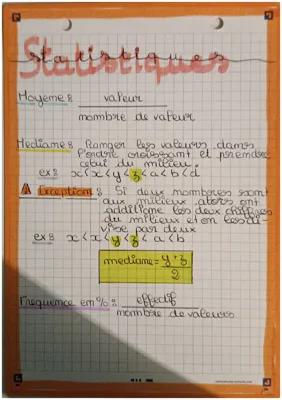 Statistiques
Moyenne : valeur
nombre de valeur
Mediane : Ranger les valeurs dans
l'ordre croissant et prendre
celui du milieu.
ex : x < x < y < z < a < b < d
Exception : Si deux nombres sont
aux milieu alors ont
additionne les deux chiffres
du milieu et on les di-
vise par deux
ex : x < x < y < z < a < b
mediane = y + z
2
Frequence en % : effectif
nombre de valeurs